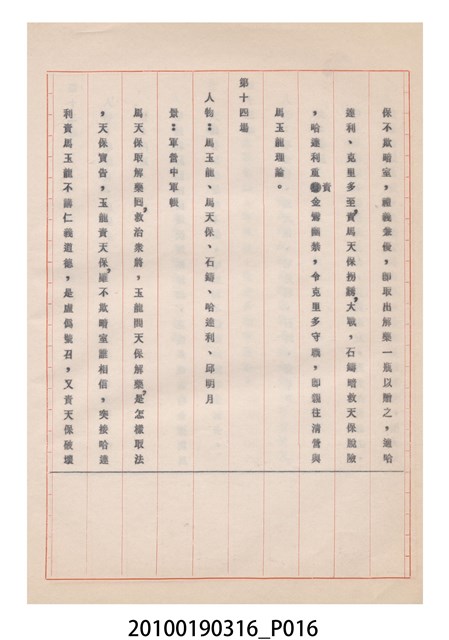 保不欺暗室，禮義兼優，即取出解藥一瓶以贈之，適哈
達利、克里多至，責馬天保拐誘，大戰，石鑄暗救天保脫險
，哈達利重責金鶯幽禁，令克里多守職，即親往清營與
馬玉龍理論。
第十四場
人物：馬玉龍、馬天保、石鑄、哈達利、邱明月
景：軍營中軍帳
馬天保取解藥回，救治衆將，玉龍問天保解藥，是怎樣取法
，天保實告，玉龍責天保，雖不欺暗室誰相信，突接哈達
利責馬玉龍不講仁義道德，是虛偽號召，又責天保破壞
20100190316_P016